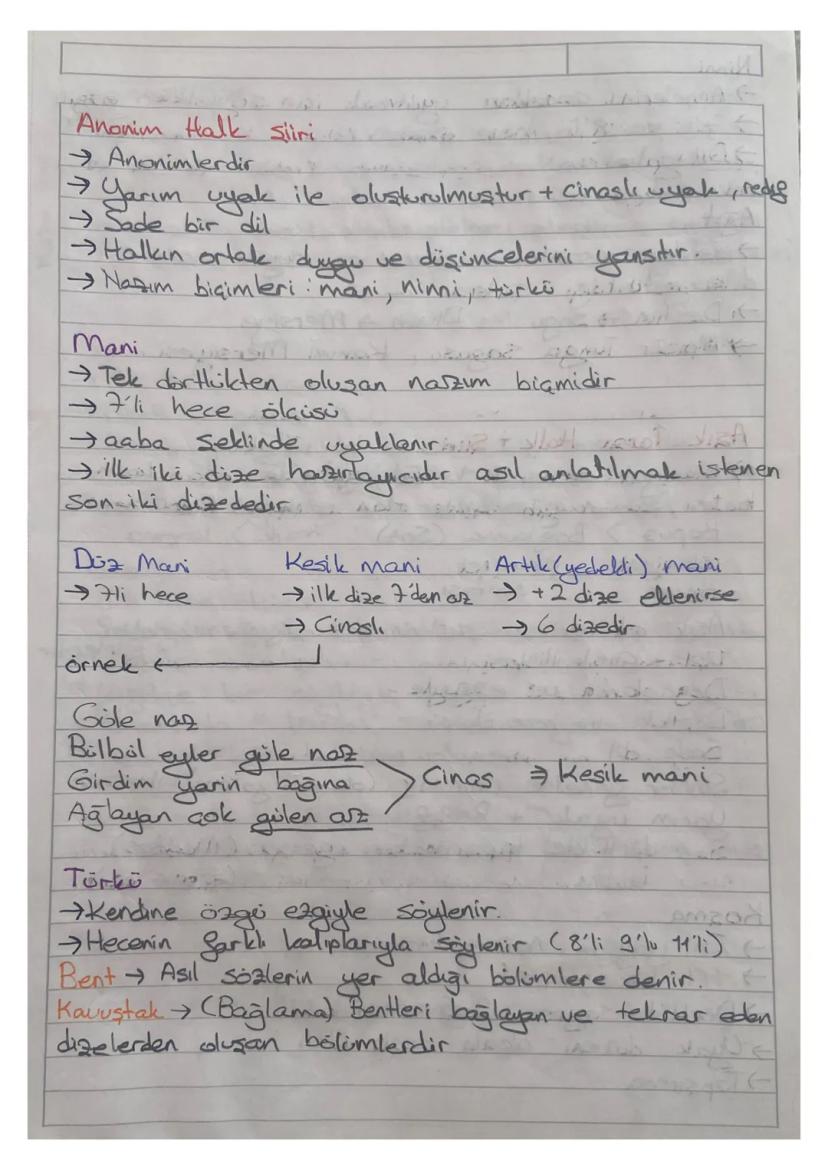 Anonim Halk Şiiri
→ Anonimlerdir
→ Yarım uyak ile oluşturulmuştur + cinaslı uyak, redif
→ Sade bir dil
→ Halkın ortak duygu ve düşüncelerini yansıtır.
→ Nazım biçimleri : mani, ninni, türkü
Mani
→ Tek dörtlükten oluşan nazım biçmidir
→ 7'li hece ölçüsü
→ aaba şeklinde uyaklanır
→ ilk iki dize hazırlayıcıdır asıl anlatılmak istenen
son iki dizededir
Düz Mani Kesik mani Artık (yedekli) mani
→ 7li hece → ilk dize 7'den az → +2 dize eklenirse
→ Cinaslı → 6 dizedir
örnek ←
Güle naz
Bülbül eyler güle naz
Girdim yarin bağına > Cinas ⇒ Kesik mani
Ağlayan çok gülen az
Türkü
→ Kendine özgü ezgiyle söylenir.
→ Hecenin farklı kalıplarıyla söylenir (8'li 9'lu 11'li)
Bent → Asıl sözlerin yer aldığı bölümlere denir.
Kavuştak → (Bağlama) Bentleri bağlayan ve tekrar eden
dizelerden oluşan bölümlerdir